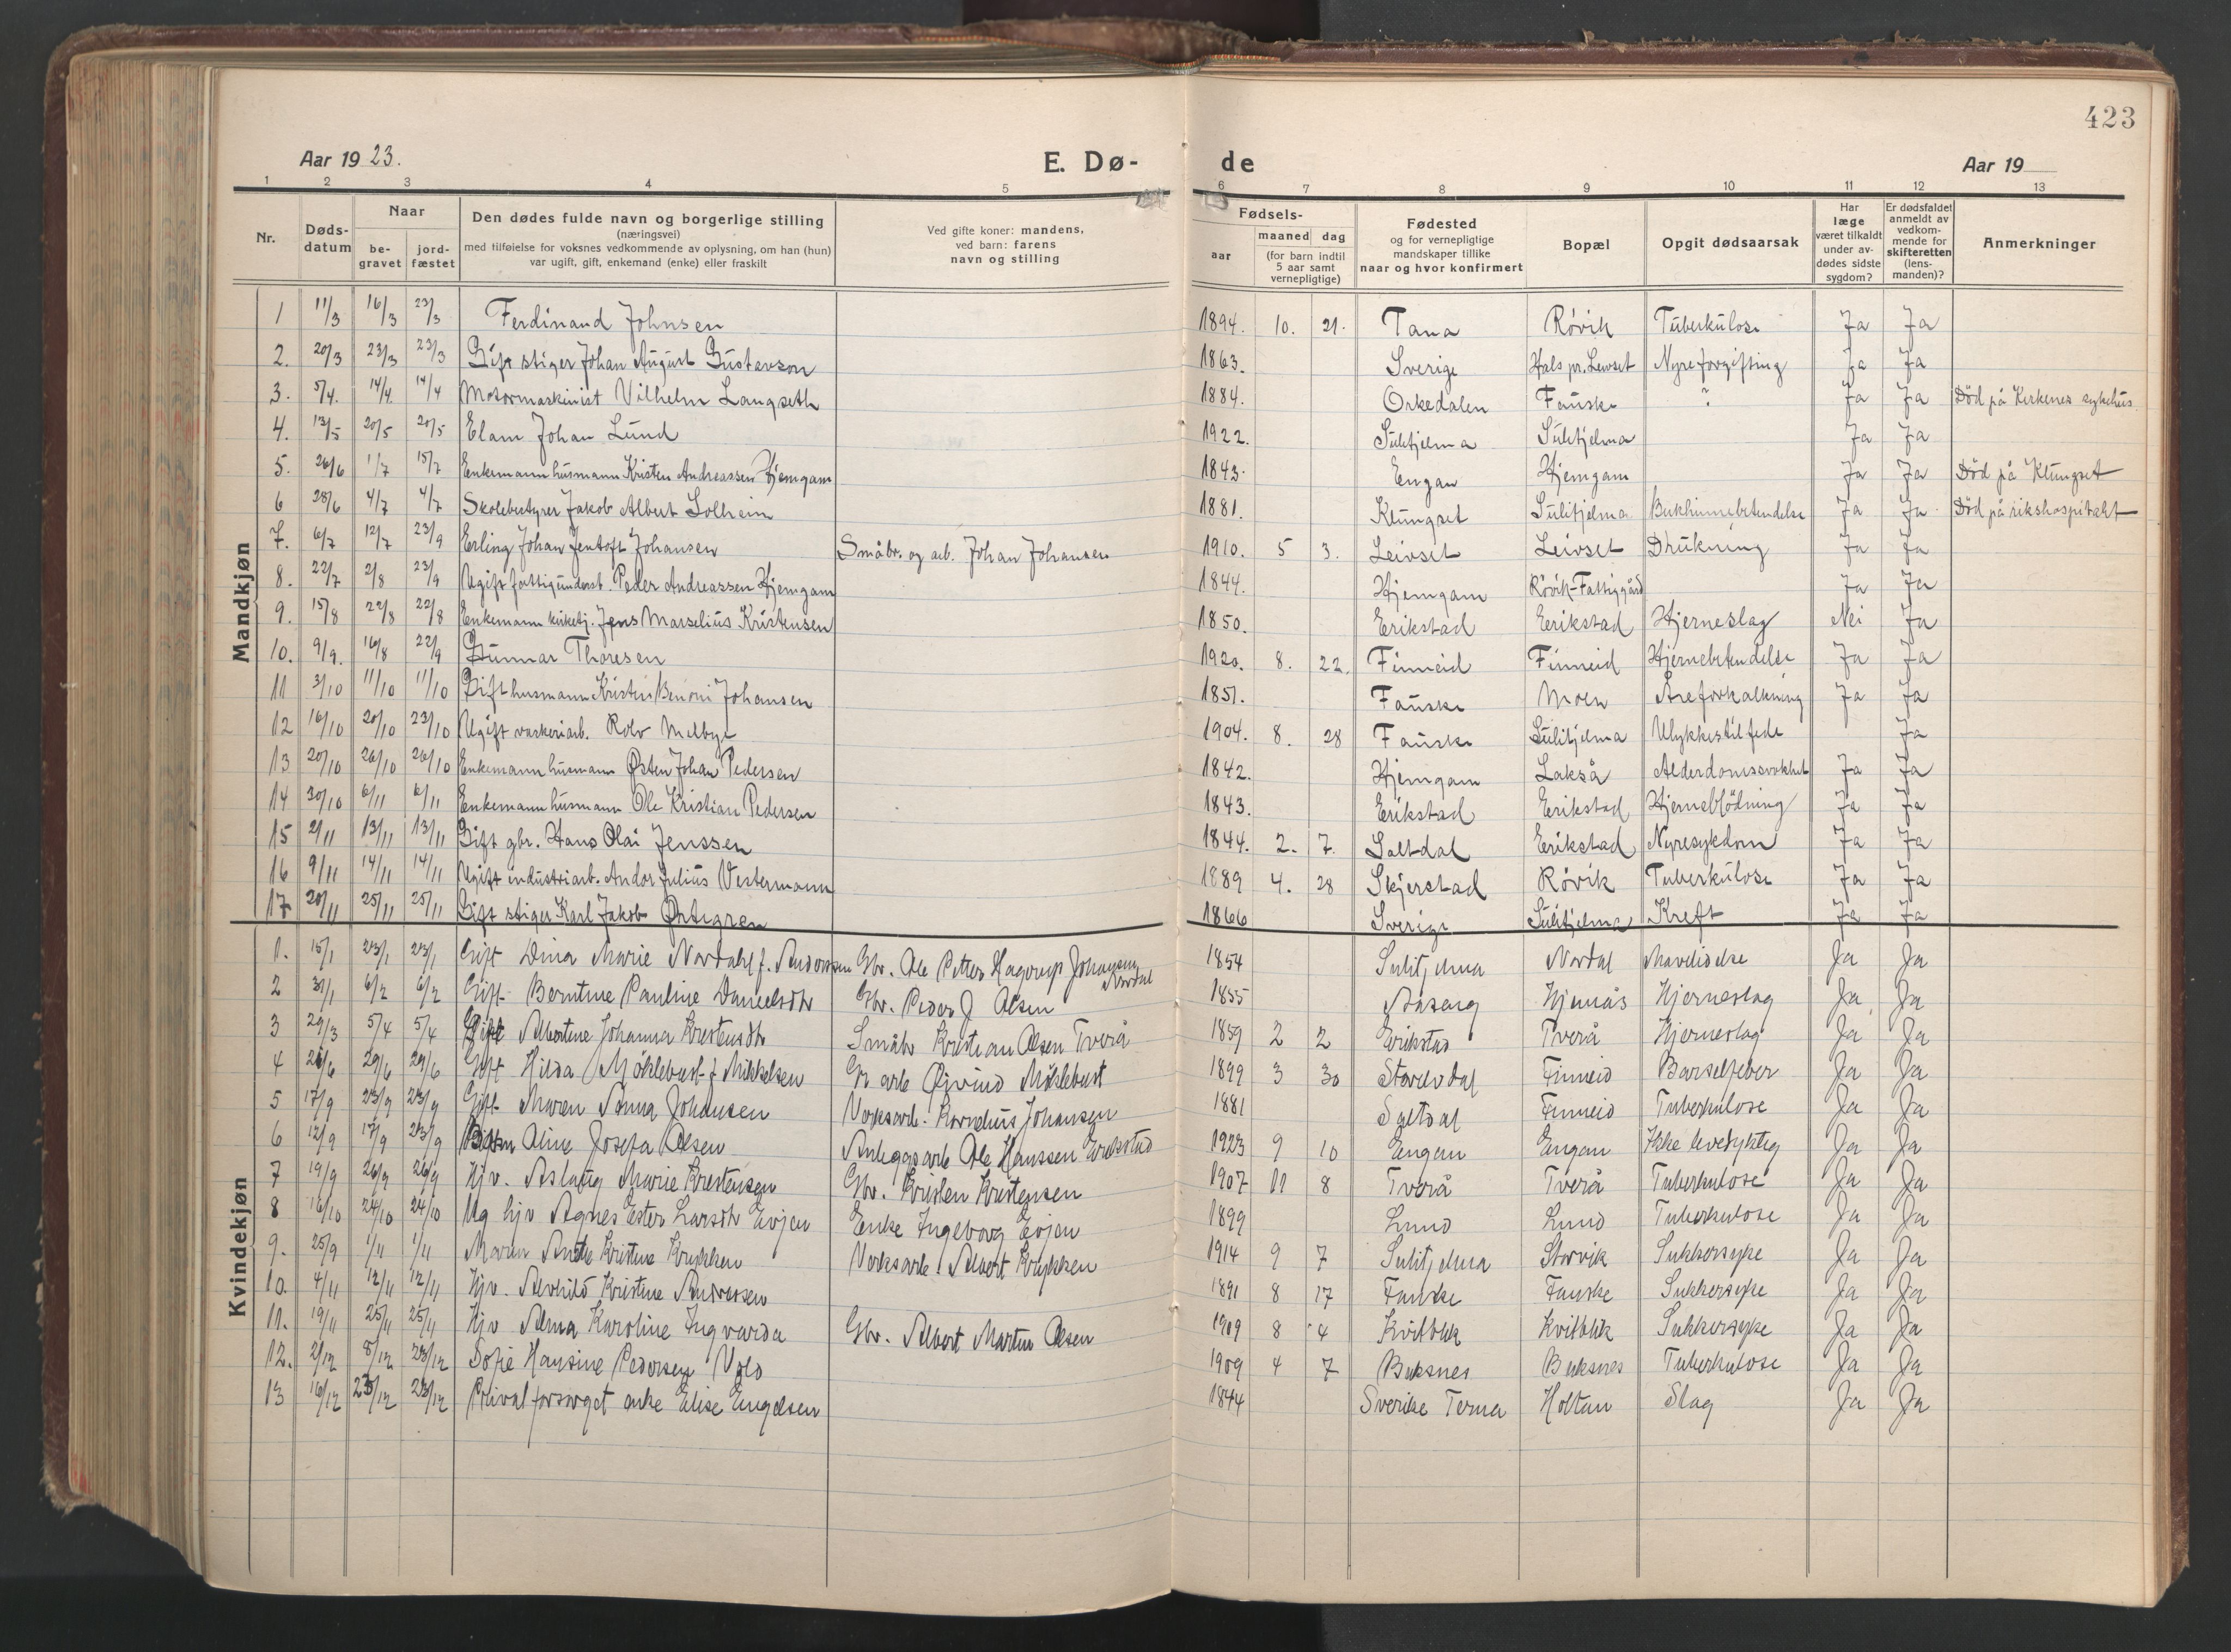 423
Aar 1923. E. Dø- de Aar 19
1 2 3 4 5 6 7 8 9 10 11 12 13
Nr. Døds-datum Naar be-gravet jord-fæstet Den dødes fulde navn og borgerlige stilling (næringsvei) med tilføielse for voksnes vedkommende av oplysning, om han (hun) var ugift, gift, enkemand (enke) eller fraskilt Ved gifte koner: mandens, ved barn: farens navn og stilling Fødsels- aar maaned dag (for barn indtil 5 aar samt vernepligtige) Fødested og for vernepligtige mandskaper tillike naar og hvor konfirmert Bopæl Opgit dødsaarsak Har læge været tilkaldt under av-dødes sidste sygdom? Er dødsfaldet anmeldt av vedkom-mende for skifteretten (lens-manden)? Anmerkninger
Mandkjøn
1 11/3 16/3 23/3 Ferdinand Johnsen 1894. 10. 21. Tana Røvik Tuberkulose Ja Ja
2. 20/3 23/3 23/3 Gift stiger Johan August Gustavson 1863. Sverige Hals pr. Leivset Nyreforgiftning Ja Ja
3. 5/4. 14/4. 14/4 Motormaskinist Vilhelm Langseth 1884. Orkedalen Fauske ? Ja Ja Död på Kirkenes sykehus.
4. 13/5 20/5 20/5 Elam Johan Lund 1922. Sulitjelma Sulitjelma Ja Ja
5. 26/6 1/7 15/7 Enkemann husmann Kristen Andreassen Hjemgam 1843. Engan Hjemgam Ja Ja Död på Klungset
6 28/6 4/7 4/7 Skolebestyrer Jakob Albert Solheim 1881. Klungset Sulitjelma Bukhinnebetendelse Ja Ja Död på rikshospitalet
7. 6/7 12/7 23/9 Erling Johan Jentoft Johansen Småbr. og arb. Johan Johansen 1910. 5 3. Leivset Leivset Drukning Ja Ja
8. 22/7 2/8 23/9 Ugift fattigunderst. Peder Andreassen Hjemgam 1844. Hjemgam Røvik-Fattiggård Ja Ja
9. 15/8 22/8 22/8 Enkemann kirketj. Jens Marselius Kristensen 1850. Erikstad Erikstad Hjerneslag Nei Ja
10. 9/9. 16/8 22/9 Gunnar Thoresen 1920. 8. 22. Finneid Finneid Hjernebetendelse Ja Ja
11 3/10 11/10 11/10 Gift husmann Kristen Benoni Johansen 1851. Fauske Moen Åreforkalkning Ja Ja
12 16/10 20/10 23/10 Ugift vaskeriarb. Rolv Melbye 1904. 8. 28 Fauske Sulitjelma Ulykkestilfede Ja
13 20/10 26/10 26/10 Enkemann husmann Østen Johan Pedersen 1842. Hjemgam Lakså Alderdomssvakhet Ja Ja
14 30/10 6/11 6/11 Enkemann husmann Ole Kristian Pedersen 1843. Erikstad Erikstad Hjerneblödning Ja Ja
15 2/11 13/11 13/11 Gift gbr. Hans Olai Jenssen 1844. 2. 7. Saltdal Erikstad Nyresykdom Ja Ja
16 9/11 14/11 14/11 Ugift industriarb. Andor Julius Vestermann 1889 4. 28 Skjerstad Røvik Tuberkulose Ja Ja
17 20/11 25/11 25/11 Gift stiger Karl Jakob Østigren 1866 Sverige Sulitjelma Kreft Ja Ja
Kvindekjøn
1. 15/1 23/1 23/1 Gift Dina Marie Nordahl f. Andersen Gbr. Ole Petter Hagerup Johansen Nordal 1854 Sulitjelma Nordal Mavelidelse Ja Ja
2 31/1 6/2 6/2 Gift Berntine Pauline Danielsdtr Gbr. Peder J Olsen 1855 Hjemås Hjerneslag Ja Ja
3 29/3 5/4 5/4 Gift Albertine Johanna Kristensdtr Småbr Kristian Olsen Tverå 1859 2 2 Erikstad Tverå Hjerneslag Ja Ja
4 21/6 29/6 29/6 Gift Hilda Møklebust f Mikkelsen Gr arb Øjvind Møklebust 1899 3 30 Finneid Barselfeber Ja Ja
5 17/9 23/9 23/9 Gift Maren Anna Johansen Verksarb. Kornelius Johansen 1881 Saltdal Finneid Tuberkulose Ja Ja
6 12/9 17/9 23/9 Barn Aline Josefa Olsen Anleggsarb Ole Hanssen Erikstad 1923 9 10 Engan Engan Ikke levedyktig Ja Ja
7 19/9 26/9 26/9 Hjv. Aslaug Marie Kristensen Gbr. Kristen Kristensen 1907 11 8 Tverå Tverå Tuberkulose Ja Ja
8 16/10 24/10 24/10 Ug hjv Agnes Ester Larsdtr Evjen Enke Ingeborg Evjen 1899 Lund Lund Tuberkulose Ja Ja
9. 25/9 1/11 1/11 Maren Anette Kristine Krykken Verksarb. Albert Krykken 1914 9 7 Sulitjelma Storvik Sukkersyke Ja Ja
10. 4/11 12/11 12/11 Hjv. Alvhild Kristine Andreasen 1891 8 17 Fauske Fauske Sukkersyke Ja Ja
11. 19/11 25/11 25/11 Hjv Alma Karoline Ingvarda Gbr. Albert Martin Olsen 1909 8 4 Kvitblik Kvitblik Sukkersyke Ja Ja
12. 2/12 8/12 23/12 Sofie Hansine Pedersen Vold 1909 4 7 Buksnes Buksnes Tuberkulose Ja Ja
13 16/12 23/12 23/12 Privat forsørget enke Elise Engelsen 1844 Sverike Terna Holtan Slag Ja Ja